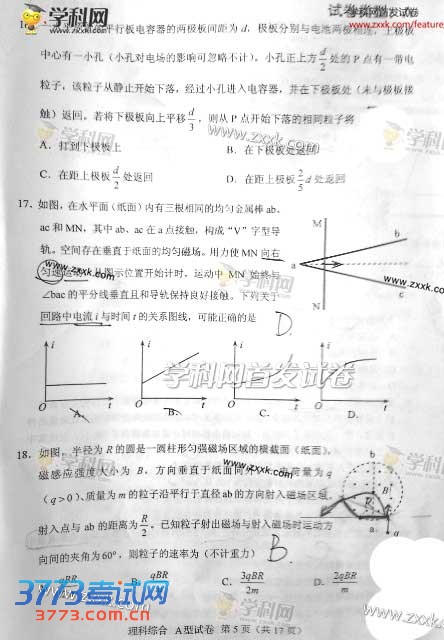 学科网
试卷类型：A
学科网首发试卷
http://www.zxxk.com/feature
平行板电容器的两极板间距为 d，极板分别与电池两极相连，上极板
中心有一小孔（小孔对电场的影响可忽略不计）。小孔正上方 d/2 处的 P 点有一带电
粒子，该粒子从静止开始下落，经过小孔进入电容器，并在下极板处（未与极板接
触）返回。若将下极板向上平移 d/3，则从 P 点开始下落的相同粒子将
www.zxxk.com
A．打到下极板上 B．在下极板处返回
C．在距上极板 d/2 处返回 D．在距上极板 2/5 d 处返回
17．如图，在水平面（纸面）内有三根相同的均匀金属棒 ab、
ac 和 MN，其中 ab、ac 在 a 点接触，构成“V”字型导
轨。空间存在垂直于纸面的均匀磁场。用力使 MN 向右
匀速运动，从图示位置开始计时，运动中 MN 始终与
∠bac 的平分线垂直且和导轨保持良好接触。下列关于
回路中电流 i 与时间 t 的关系图线，可能正确的是 D.
M
b
a
c
N
www.zxxk.com
www.zxxk.com
i i i i
学科网首发试卷
O t O t O t O t
A. B. C. D.
18．如图，半径为 R 的圆是一圆柱形匀强磁场区域的横截面（纸面），
磁感应强度大小为 B，方向垂直于纸面向外，一电荷量为 q
（q＞0）、质量为 m 的粒子沿平行于直径 ab 的方向射入磁场区域，
射入点与 ab 的距离为 R/2。已知粒子射出磁场与射入磁场时运动方
向间的夹角为 60°，则粒子的速率为（不计重力） B.
b
B
R
a
q
学科网
www.zxxk.com
qBR B. qBR C. 3qBR/2m D. 2qBR
3773考试网
www.3773.com
www.zxxk.com
理科综合 A型试卷 第 5 页（共 17 页）